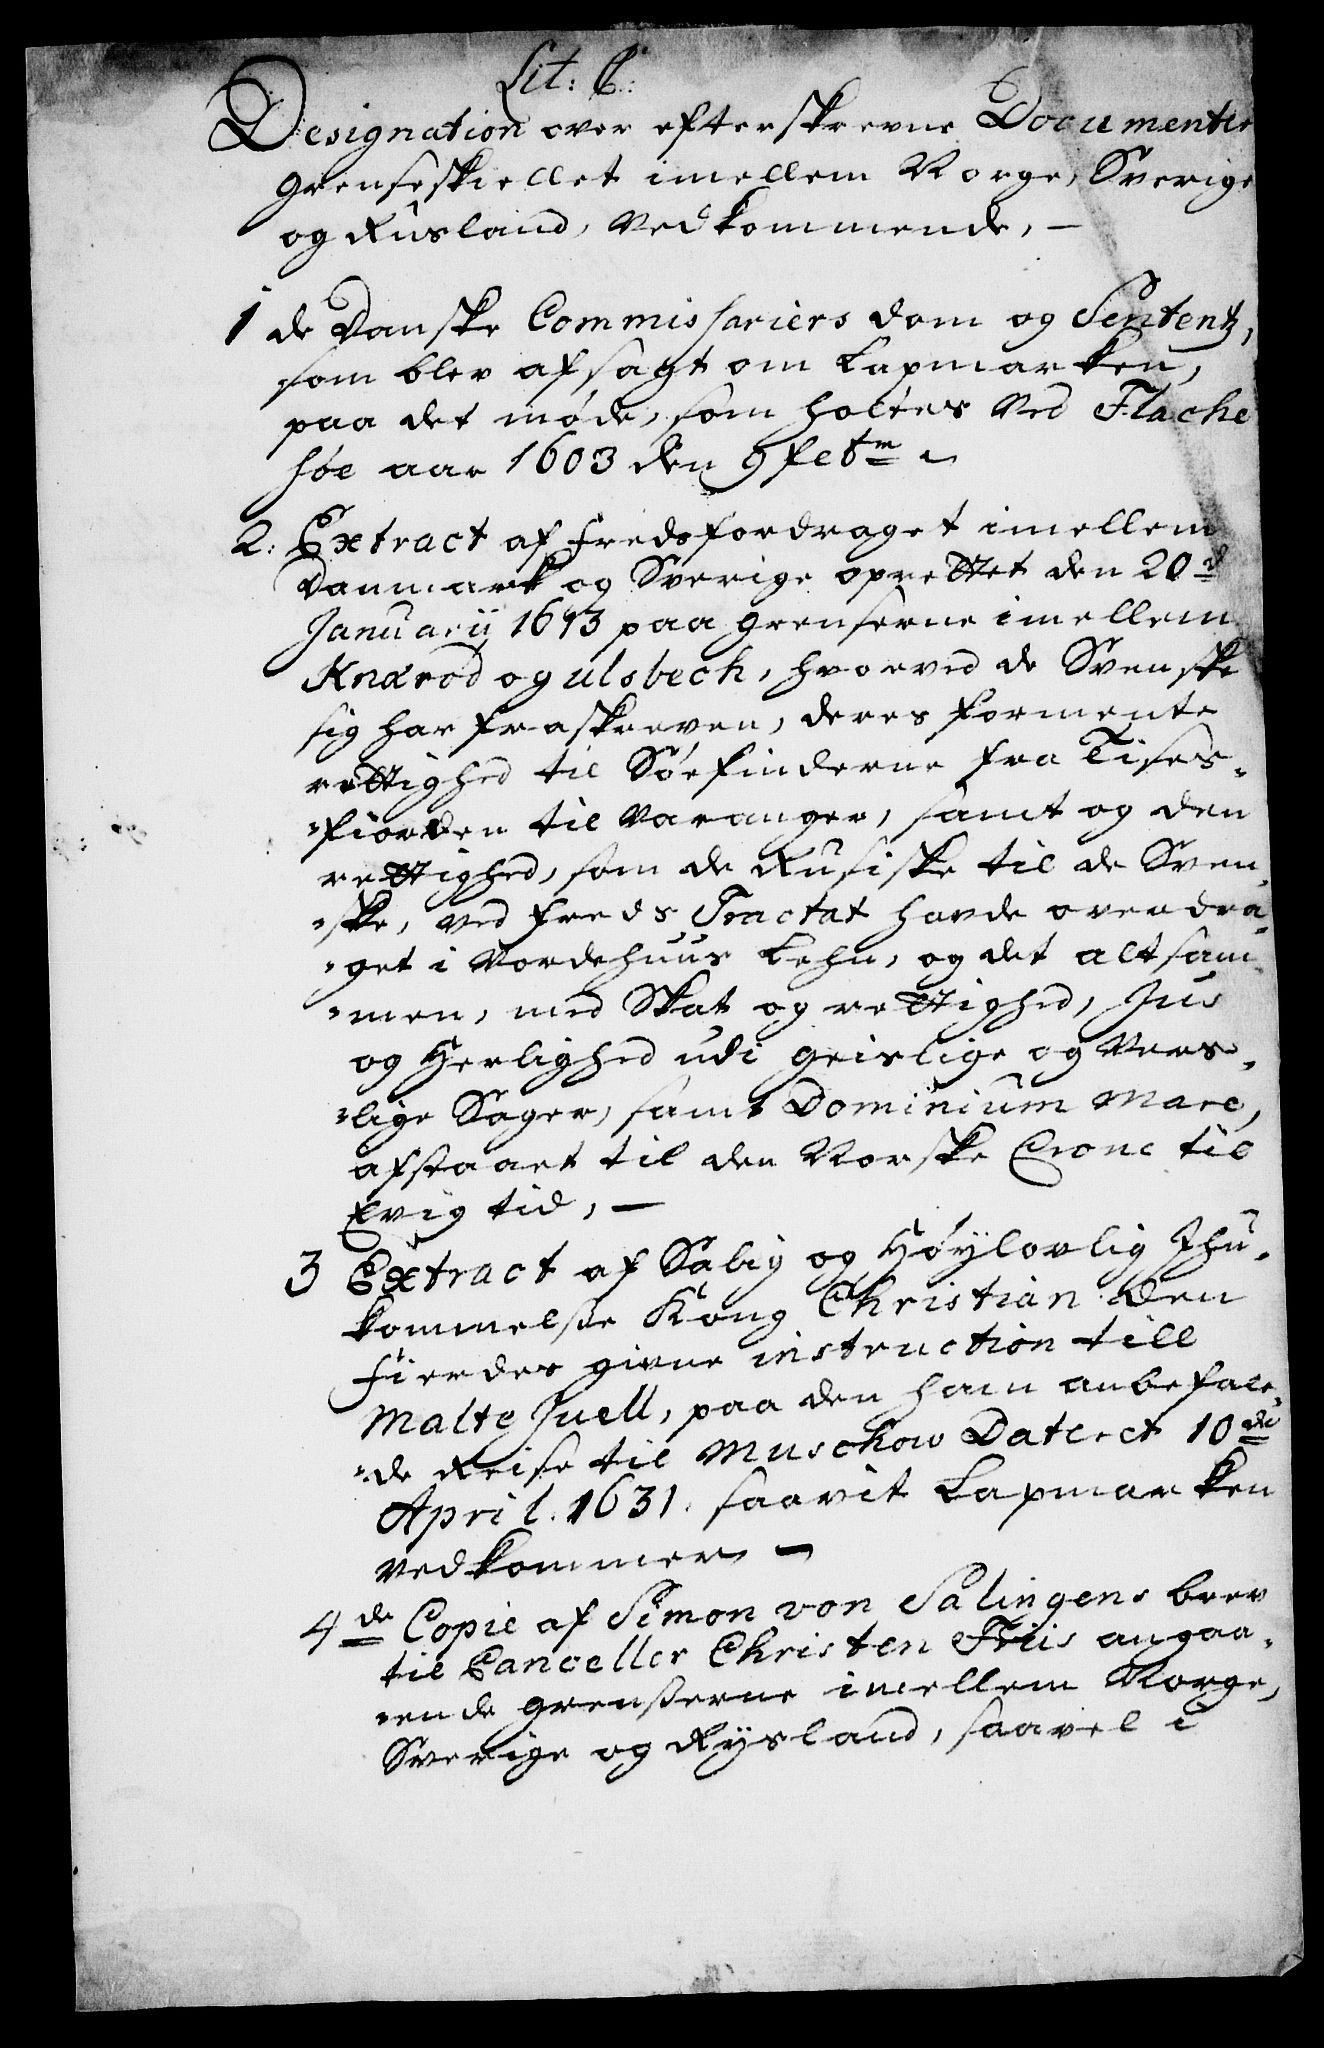 Lit: C:
Designation over efterskrevne Documenter
Grenseskiellet imellem Norge, Sverige
og Rusland, Vedkommende, —
1 de Danske Commissariers dom og Sententz,
som blev afsagt om Lapmarken,
paa det møde, som holtes Ved Flache
høe aar 1603 den 9 febr
2. Extract af Fredsfordraget imellem
Danmark og Sverige oprettet den 20d
Januarij 1613 paa grenserne imellem
Knærød og ulsbech, hvorved de Svenske
sig har fraskreven, deres formente
rettighed til Søefinderne fra Tises-
-fiorden til Varanger, samt og den
rettighed, som de Rusiske til de Sven-
-ske, ved freds Tractat havde overdra-
-get i Vordehuus Lehn, og det altsam-
-men, med Skat og rettighed, Jus
og Herlighed udi geislige og Vers-
-lige Sager, samt Dominium Mare,
afstaaet til den Norske Crone til
Evig tid, —
3 Extract af Salig og Høylovlig Ihu-
kommelse Kong Christian den
Fierdes givne instruction till
Malte Juell, paa den ham anbefale-
-de Reise til Muschow Dateret 10de
April. 1631. saavit Lapmarken
vedkommer —
4de Copie af Simon von Salingens brev
til Canceller Christen Friis angaa-
-ende grenserne imellem Norge,
Sverige og Rysland, saavel i